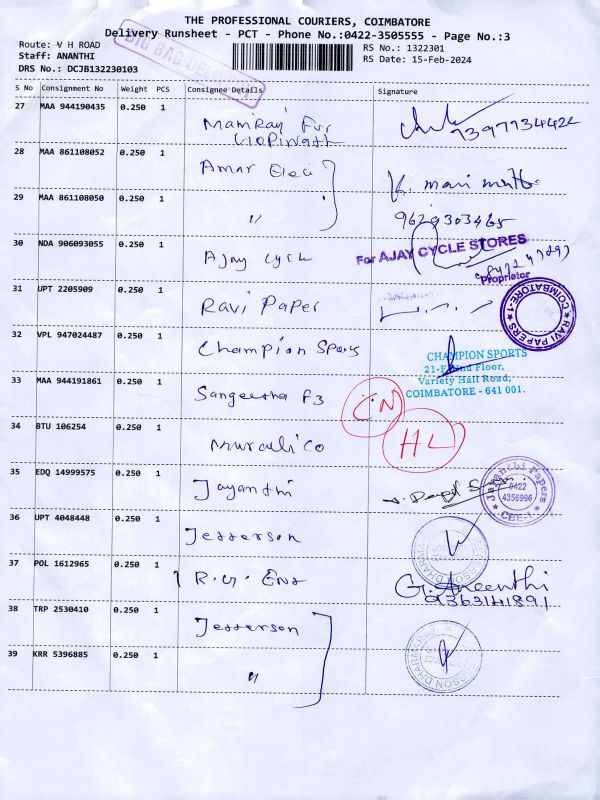 THE PROFESSIONAL COURIERS, COIMBATORE
Delivery Runsheet - PCT - Phone No.:0422-3505555 - Page No.:3
Route: V H ROAD
RS No.: 1322301
Staff: ANANTHI
RS Date: 15-Feb-2024
DRS No.: DCJB132230103
BIG BAG DELIVERY
S No Consignment No Weight PCS Consignee Details Signature
27 MAA 944190435 0.250 1
Gopinath
28 MAA 861108052 0.250 1 Amar
K. mari muttu
29 MAA 861108050 0.250 1 "
9629303465
30 NDA 906093055 0.250 1 Ajay cycle
For AJAY CYCLE STORES
Proprietor
31 UPT 2205909 0.250 1 Ravi Paper
RAVI PAPERS COIMBATORE-1
32 VPL 947024487 0.250 1 Champion Sports
CHAMPION SPORTS
21-F, IInd Floor,
Variety Hall Road,
COIMBATORE - 641 001.
33 MAA 944191861 0.250 1 Sangeetha F3
CN
34 BTU 106254 0.250 1 Murali Co
HL
35 EDQ 14999575 0.250 1 Jayanthi
Jayanthi Papers
0422
4356996
CBE-1
36 UPT 4048448 0.250 1 Jesserson
37 POL 1612965 0.250 1 R.G. Ent
G. Ananthi
9363141891
38 TRP 2530410 0.250 1 Jesserson
39 KRR 5396885 0.250 1 "